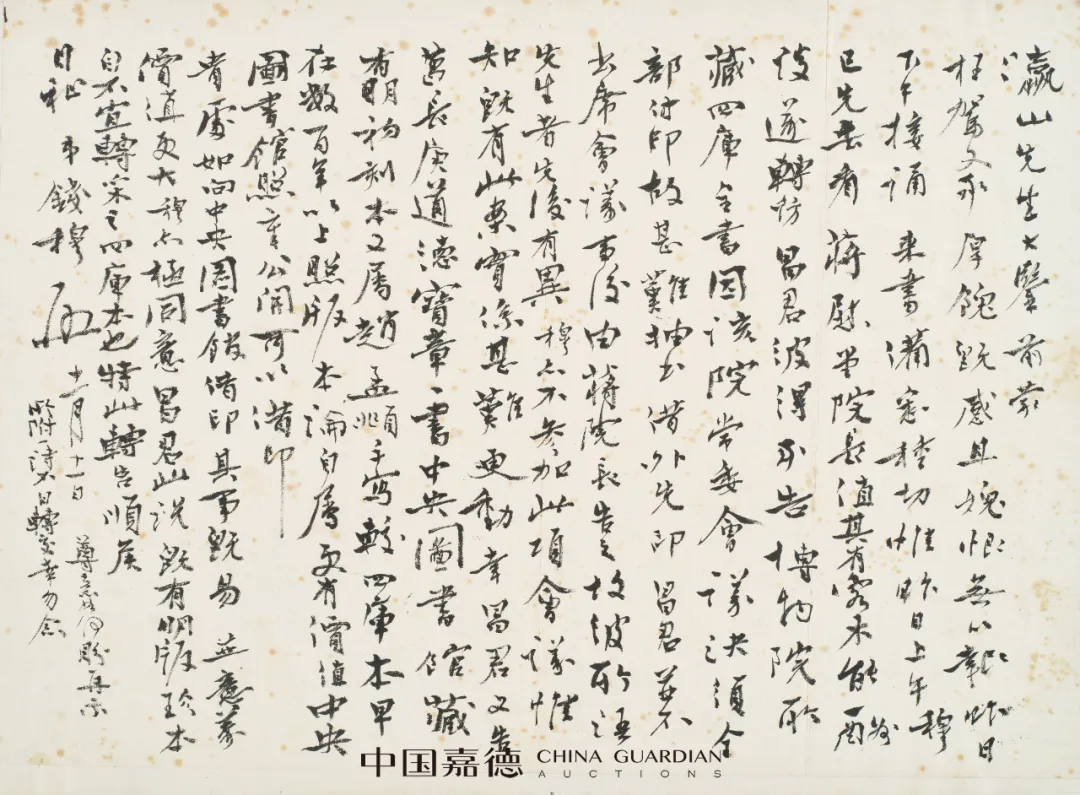 瀛山先生大鑒前蒙
枉駕又承厚餽既感且媿恨無以報昨日
下午接誦來書備悉種切惟昨日上午穆
已先去看蔣慰堂院長值其有客未能面
談遂轉訪昌君彼得承告博物院所
藏四庫全書因該院常委會議決須全
部付印故甚難抽出借外先印昌君並不
出席會議事後由蔣院長告之故彼所語
先生者先後有異穆亦不參加此項會議惟
知既有此案實係甚難更動幸昌君又告
葛長庚道德寶章一書中央圖書館藏
有明初刻本又屬趙孟頫手寫較四庫本早
在數百年以上照版本論自屬更有價值中央
圖書館照章公開可以借印
者處如向中央圖書館借印其事既易並意義
價值更大穆亦極同意昌君此說既有明版珍本
自不宜轉采之四庫本也特此轉告順候
日祉 弟錢穆 啟 十一月十一日
尊意如何盼再示
所附之漢日轉交幸勿念
中国嘉德 CHINA GUARDIAN
AUCTIONS